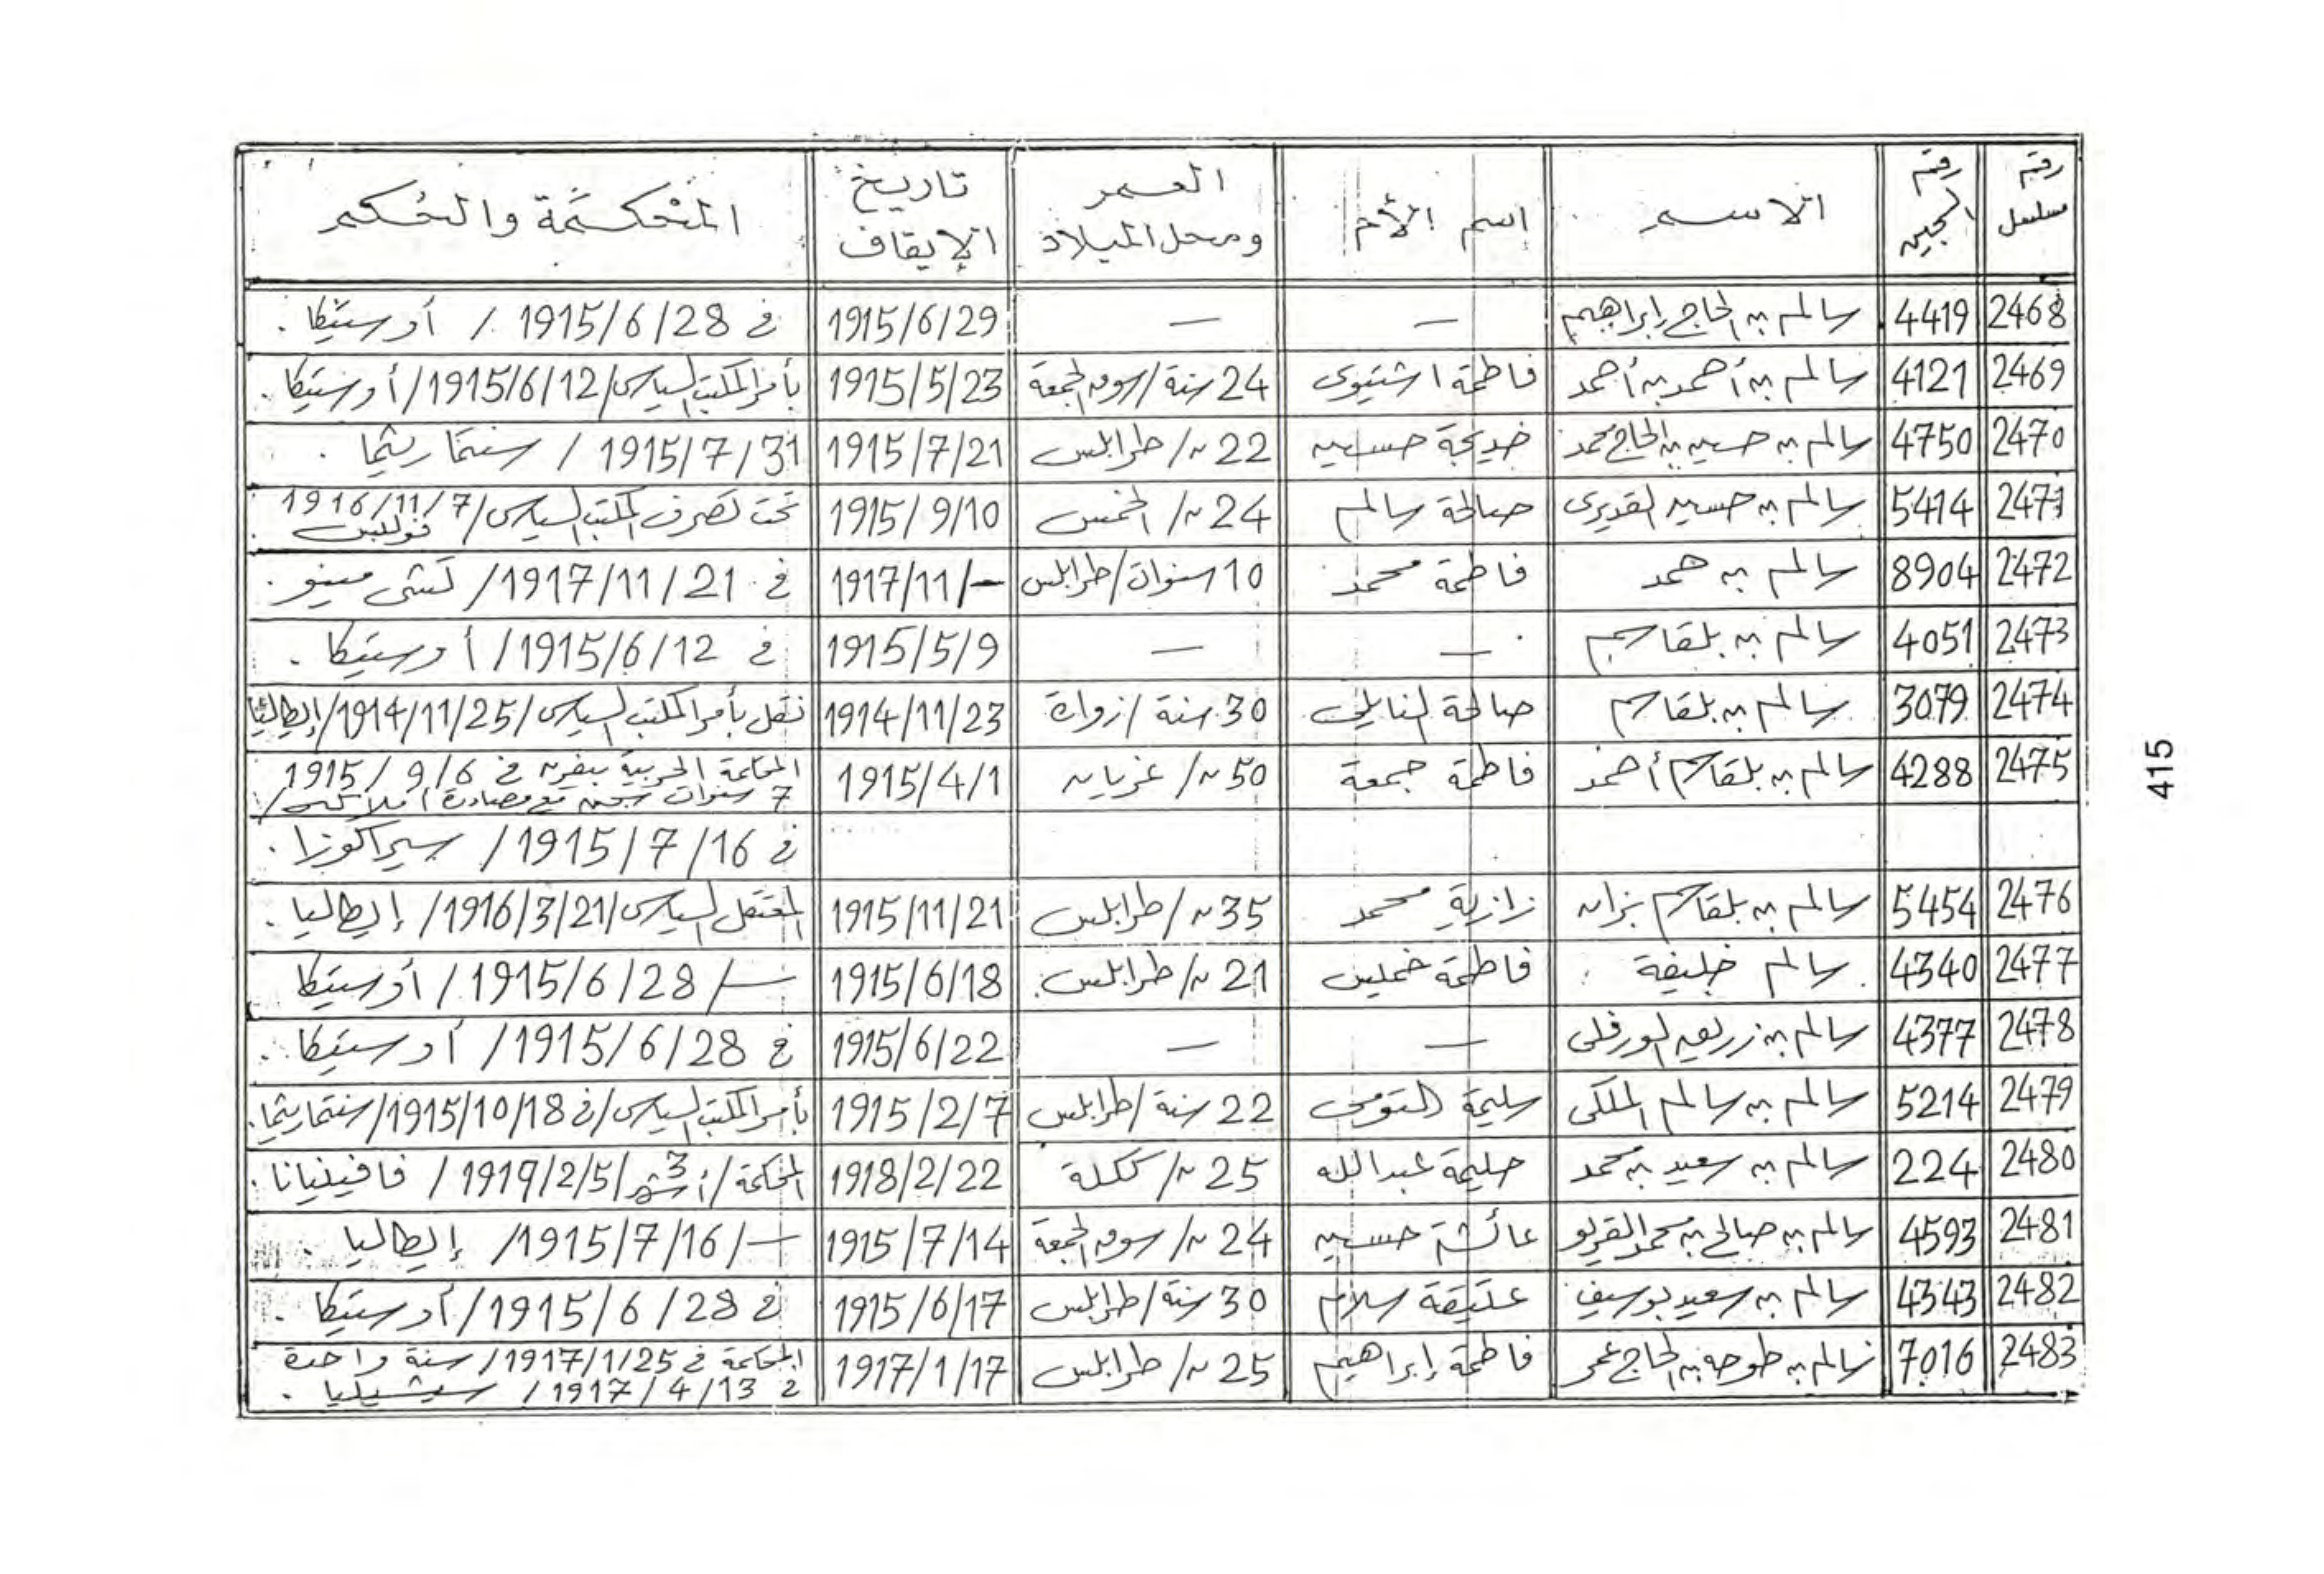 رقم مسلسل | رقم السجين | الاسم | اسم الأم | العمر ومحل الميلاد | تاريخ الإيقاف | المحكمة والحكم
2468 | 4419 | سالم بن الحاج إبراهيم | — | — | 1915/6/29 | في 1915/6/28 / أوستيكا .
2469 | 4121 | سالم بن أحمد بن أحمد | فاطمة اشتيوى | 24 سنة / سوق الجمعة | 1915/5/23 | بأمر المكتب السياسى / 1915/6/12 / أوستيكا .
2470 | 4750 | سالم بن حسين بن الحاج محمد | خديجة حسين | 22 // / طرابلس | 1915/7/21 | 1915/7/31 / سنتماريتما .
2471 | 5414 | سالم بن حسين القديرى | صالحة سالم | 24 // / الخمس | 1915/9/10 | تحت تصرف المكتب السياسى / 1916/11/7
2472 | 8904 | سالم بن حمد | فاطمة محمد | 10 سنوات / طرابلس | 1917/11/— | في 1917/11/21 /
2473 | 4051 | سالم بن بلقاسم | — | — | 1915/5/9 | في 1915/6/12 / أوستيكا .
2474 | 3079 | سالم بن بلقاسم | صالحة النايلى | 30 سنة / زوارة | 1914/11/23 | نقل بأمر المكتب السياسى / 1914/11/25 / إيطاليا
2475 | 4288 | سالم بن بلقاسم أحمد | فاطمة جمعة | 50 // / غريان | 1915/4/1 | المحكمة الحربية بيفرن في 1915/9/6
7 سنوات سجن مع مصادرة أملاكه /
في 1915/7/16 / سيراكوزا .
2476 | 5454 | سالم بن بلقاسم | محمد | 35 // / طرابلس | 1915/11/21 | المعتقل السياسى / 1916/3/21 / إيطاليا .
2477 | 4340 | سالم خليفة | فاطمة خميس | 21 // / طرابلس . | 1915/6/18 | — / 1915/6/28 / أوستيكا
2478 | 4377 | سالم بن الورفلى | — | — | 1915/6/22 | في 1915/6/28 / أوستيكا .
2479 | 5214 | سالم بن سالم الملكى | سليمة التومى | 22 سنة / طرابلس | 1915/2/7 | بأمر المكتب السياسى / في 1915/10/18 / سنتماريتما .
2480 | 224 | سالم بن سعيد بن محمد | حليمة عبدالله | 25 // / ككلة | 1918/2/22 | المحكمة / 3 أشهر / 1919/2/5 / فافينيانا .
2481 | 4593 | سالم بن صالح بن محمد القريو | عائشة حسين | 24 // / سوق الجمعة | 1915/7/14 | — / 1915/7/16 / إيطاليا .
2482 | 4343 | سالم بن سعيد بوسيف | عتيقة سلام | 30 سنة / طرابلس | 1915/6/17 | في 1915/6/28 / أوستيكا .
2483 | 7016 | سالم بن بن الحاج عمر | فاطمة إبراهيم | 25 // / طرابلس | 1917/1/17 | المحكمة في 1917/1/25 / سنة واحدة
في 1917/4/13 / سيشيليا .
415